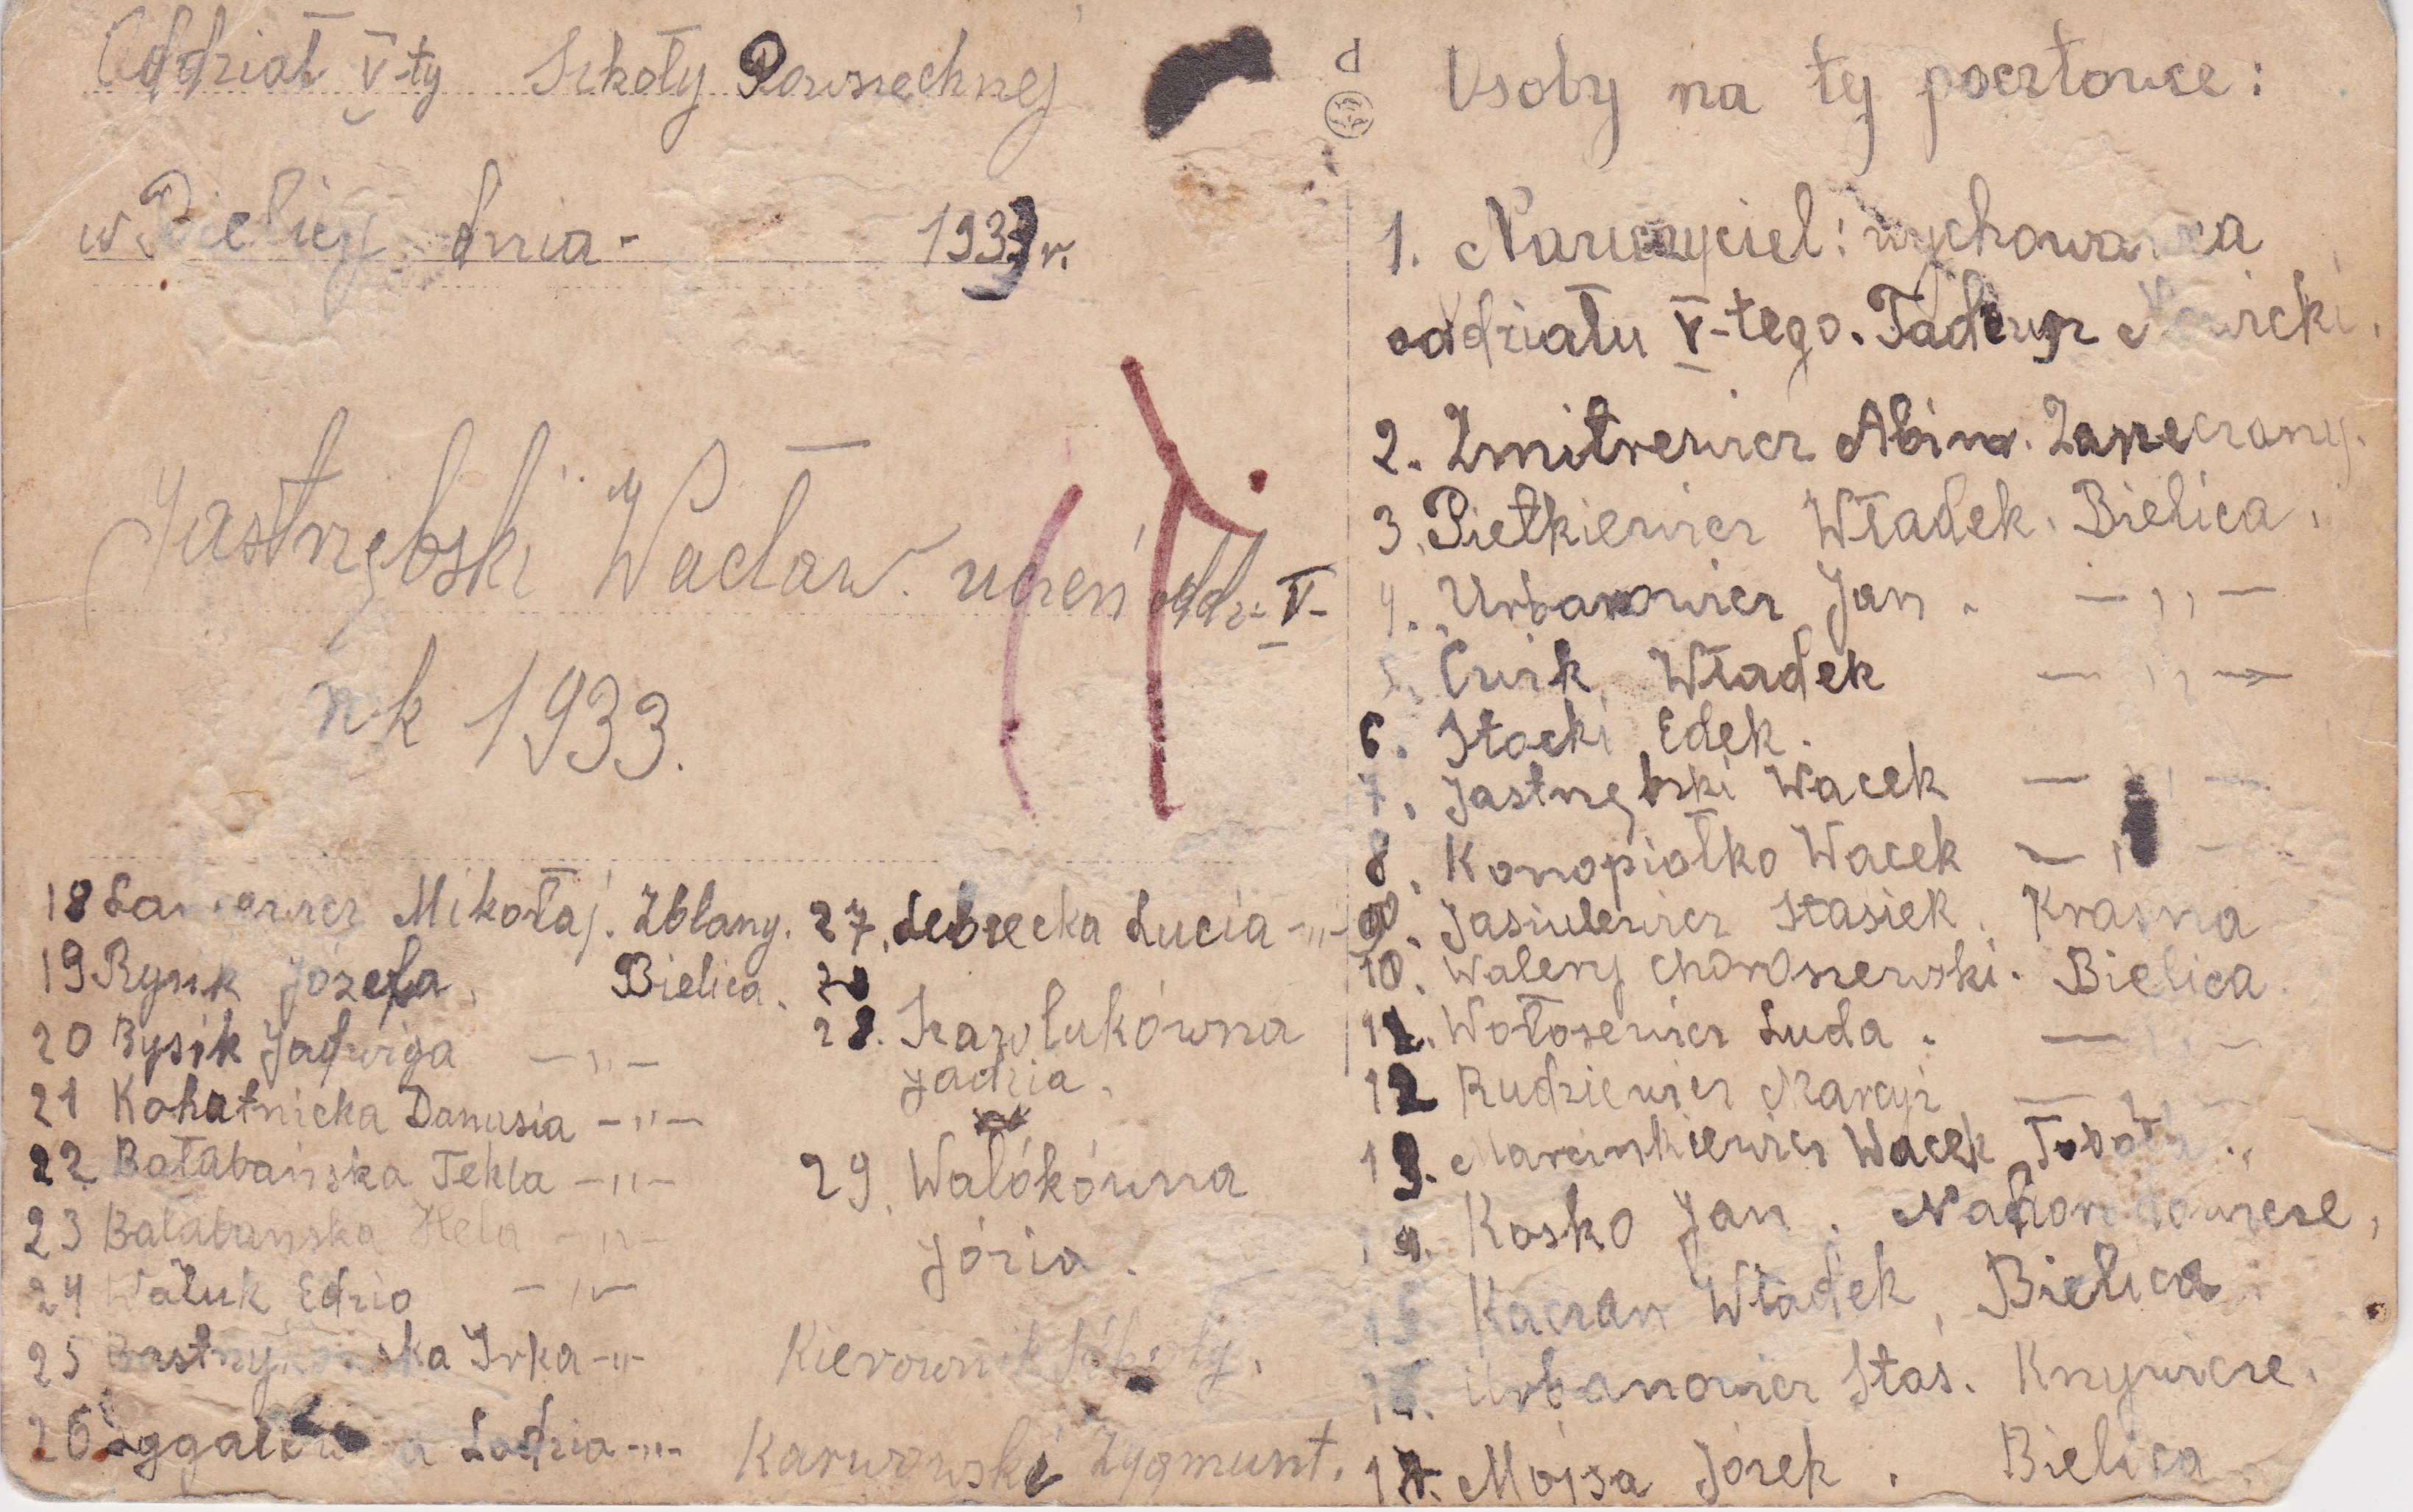 Oddział V-ty Szkoły Powszechnej
w Bielicy dnia - 1933 r.
Jastrzębski Wacław. uczeń oddz. V-
rok 1933.
18 Mikołaj. Zblany.
19 Rysik Józefa, Bielica.
20 Bysik Jadwiga —,,—
21 Kohatnicka Danusia —,,—
22 Bałabańska Tekla —,,—
23 Bałabańska Hela —,,—
24 Waluk Edzio —,,—
25 Irka —,,—
26 Lodzia —,,—
27. Lebiecka Lucia —,,—
28
28. Szawlukówna
Jadzia.
29. Walókówna
Józia.
Kierownik Szkoły.
Karwowski Zygmunt.
Osoby na tej pocztowce:
1. Nauczyciel: wychowawca
oddziału V-tego. Tadeusz
2. Zmitrewicz Abina. Zarzeczany.
3. Pietkiewicz Władek. Bielica.
4. Urbanowicz Jan. —,,—
5. Ćwik Władek —,,—
6. Stocki Edek.
7. Jastrzębski Wacek —,,—
8. Konopiołko Wacek —,,—
9. Jasiulewicz Stasiek. Krasna
10. Walery Choroszewski. Bielica
11. Wołosewicz Luda. —,,—
12 Rudziewicz Marcyś —,,—
13. Marcinkiewicz Wacek
14. Kosko Jan.
15 Kaczan Władek, Bielica.
16. Urbanowicz Staś. Knywicze.
17. Mojsa Józek. Bielica